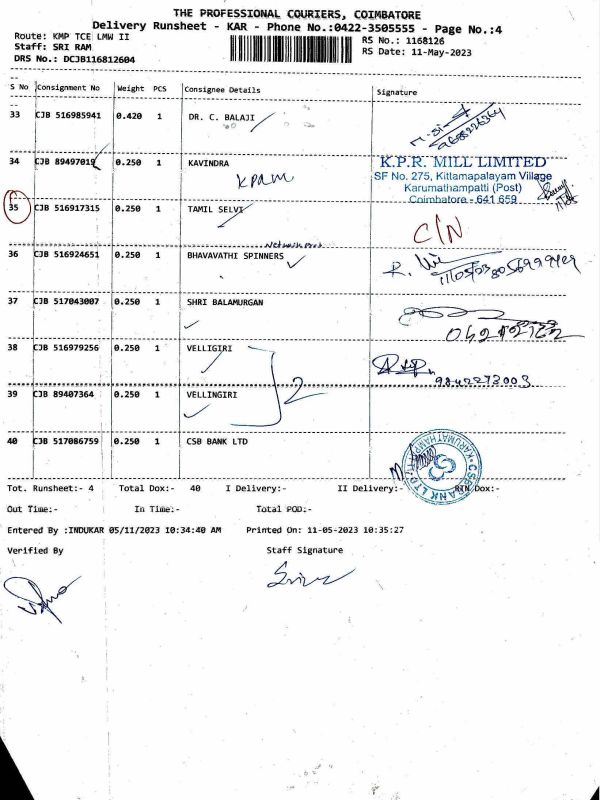 THE PROFESSIONAL COURIERS, COIMBATORE
Delivery Runsheet - KAR - Phone No.:0422-3505555 - Page No.:4
Route: KMP TCE LMW II
RS No.: 1168126
Staff: SRI RAM
RS Date: 11-May-2023
DRS No.: DCJB116812604
S No Consignment No Weight PCS Consignee Details Signature
33 CJB 516985941 0.420 1 DR. C. BALAJI
34 CJB 89497019 0.250 1 KAVINDRA
KPRM
K.P.R. MILL LIMITED
SF No. 275, Kittamapalayam Village
Karumathampatti (Post)
Coimbatore - 641 659
35 CJB 516917315 0.250 1 TAMIL SELVI
C/N
36 CJB 516924651 0.250 1 BHAVAVATHI SPINNERS
37 CJB 517043007 0.250 1 SHRI BALAMURGAN
38 CJB 516979256 0.250 1 VELLIGIRI
2
9842273003
39 CJB 89407364 0.250 1 VELLINGIRI
40 CJB 517086759 0.250 1 CSB BANK LTD
CSB BANK LTD
Tot. Runsheet:- 4 Total Dox:- 40 I Delivery:- II Delivery:- RTN Dox:-
Out Time:- In Time:- Total POD:-
Entered By :INDUKAR 05/11/2023 10:34:40 AM Printed On: 11-05-2023 10:35:27
Verified By Staff Signature